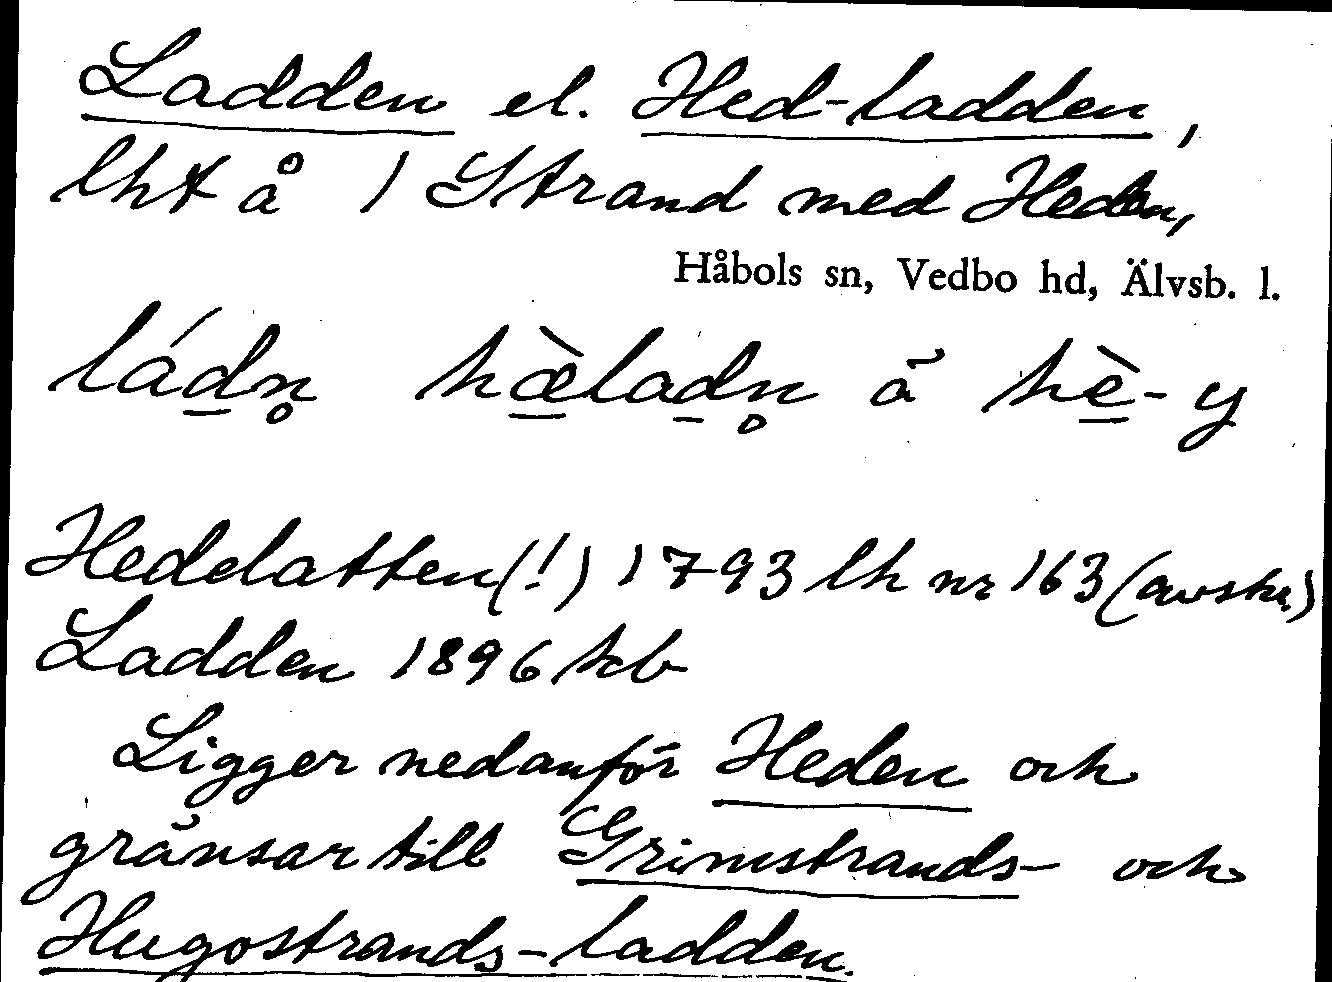 Ladden el. Hed-ladden,
lht å 1 Strand med Heden,
Håbols sn, Vedbo hd, Älvsb. l.
lád̲n̥ hæ̲̀lad̲n̥ ä hè̲- y
Hedelatten(!) 1793 lh nr 163 (avskr.)
Ladden 1896 kb
Ligger nedanför Heden och
gränsar till Grimstrands- och
Hugostrands-ladden.